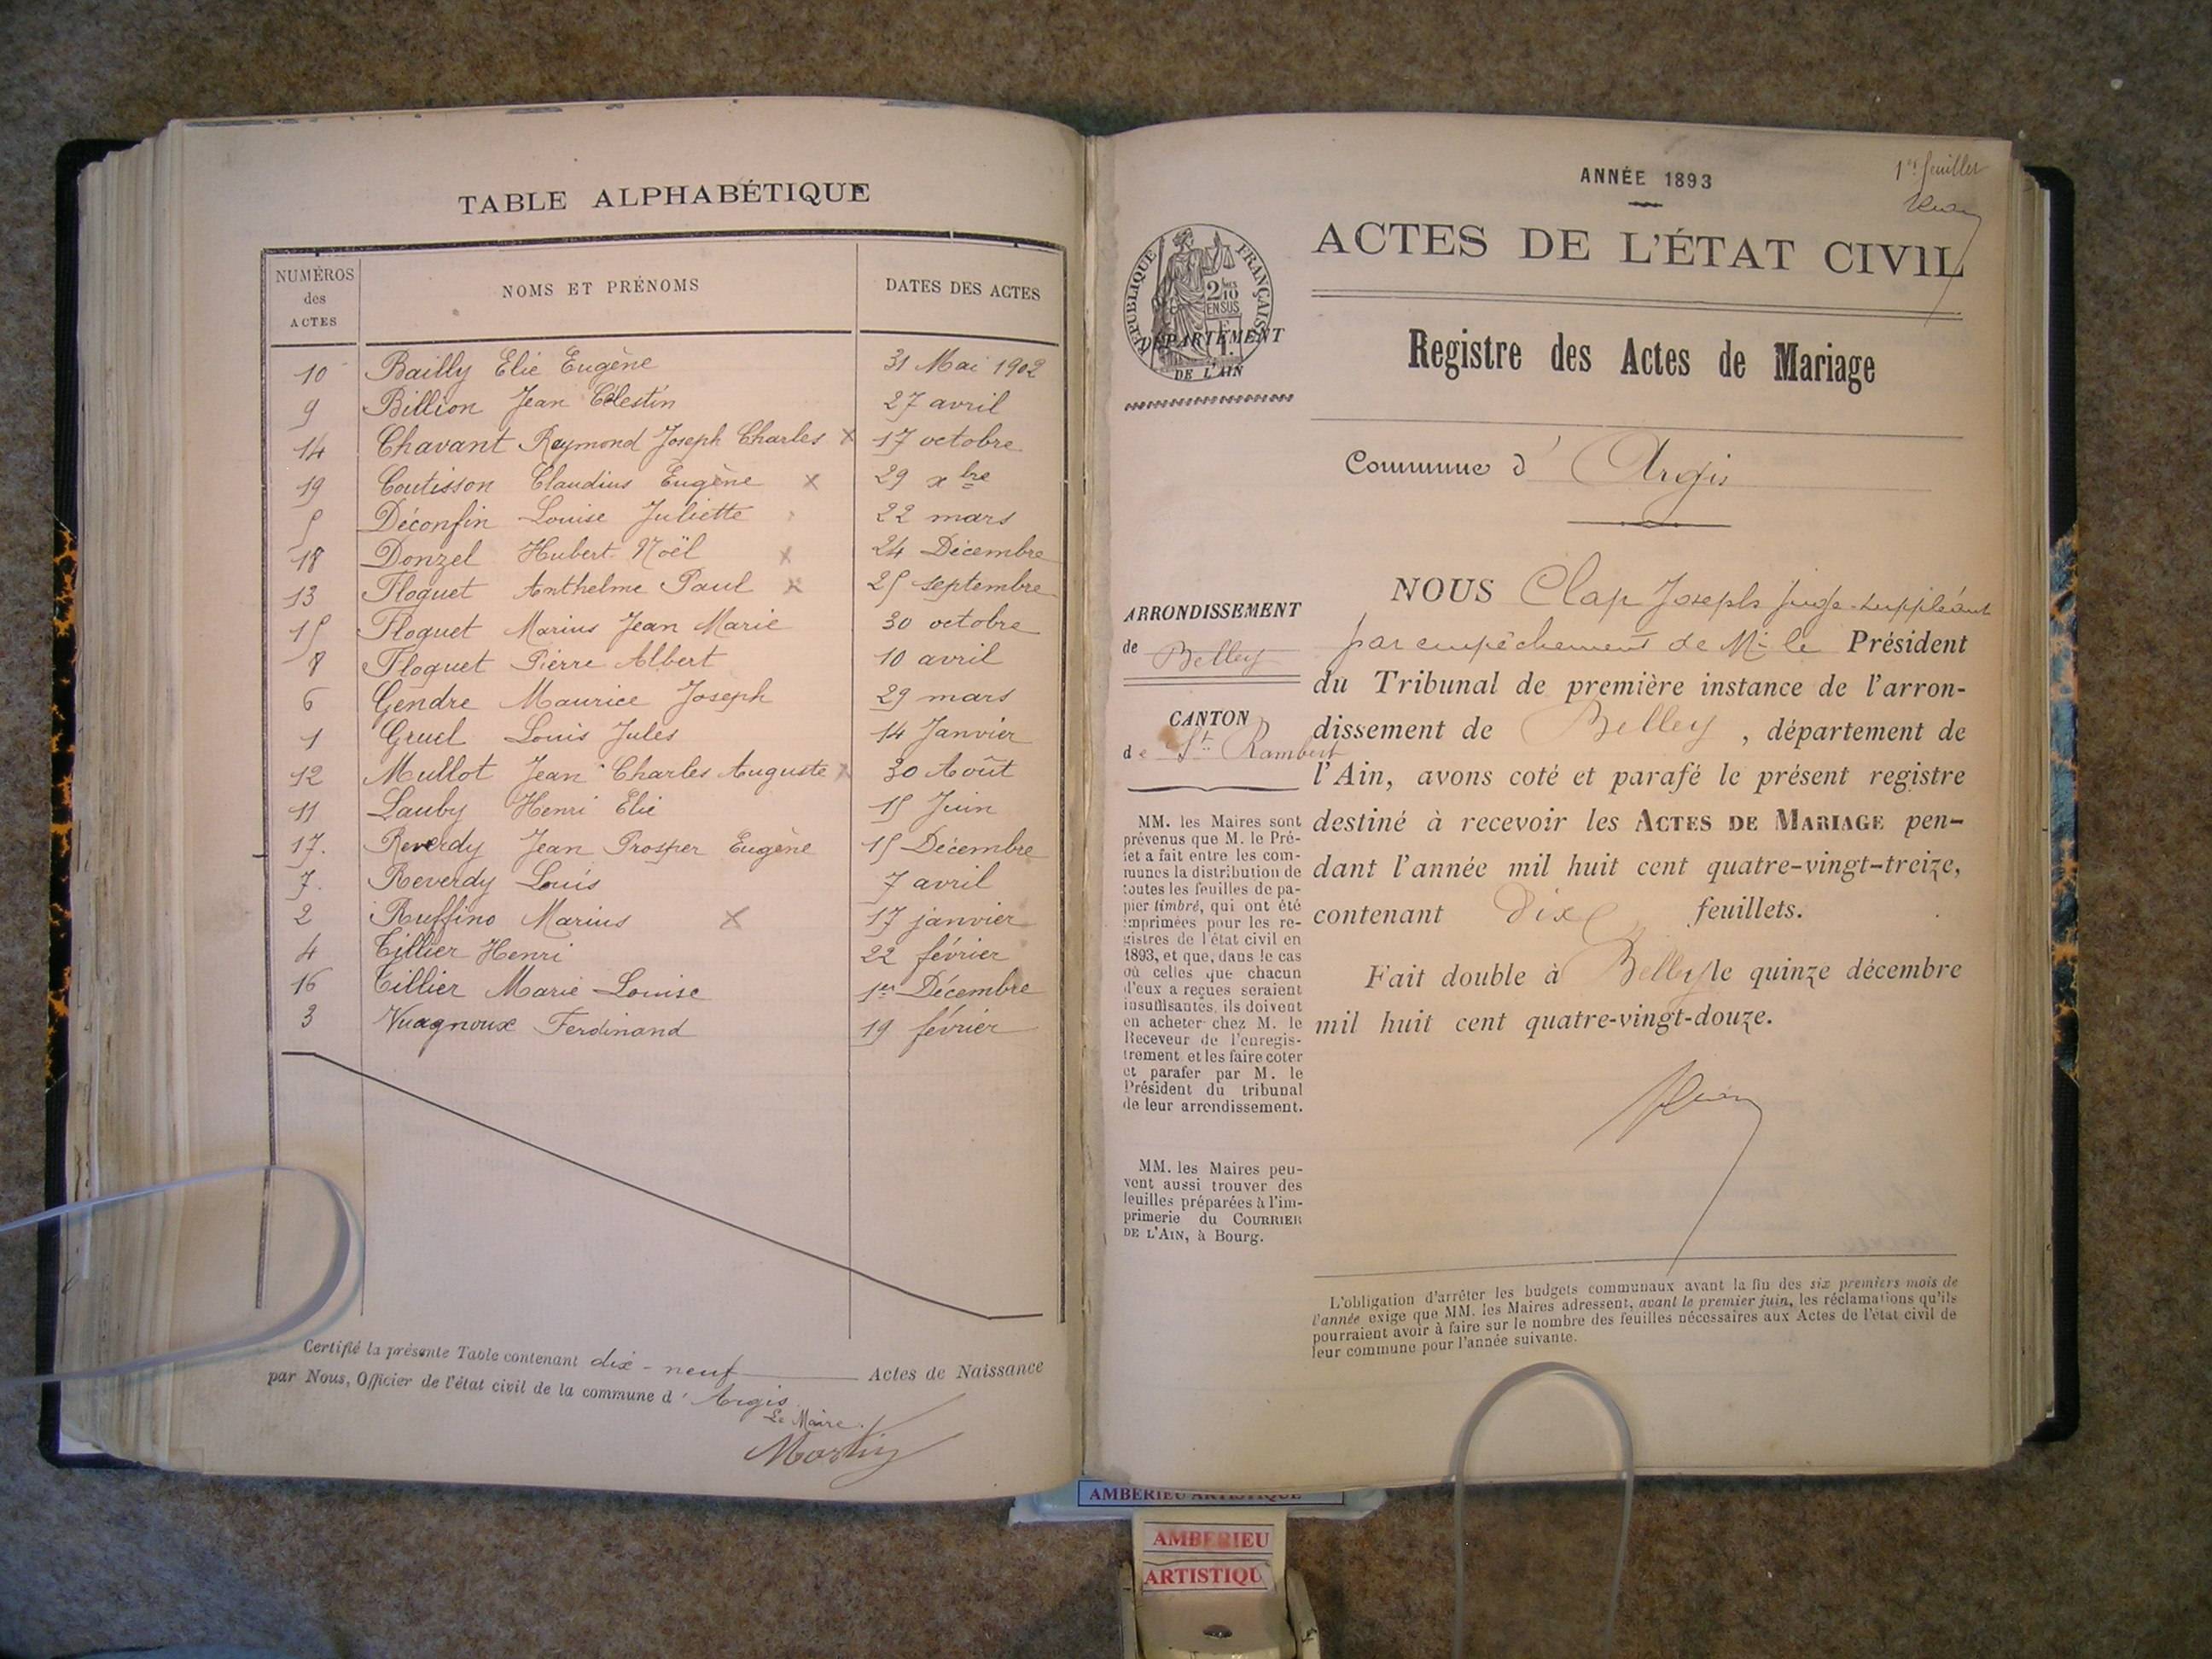 TABLE ALPHABÉTIQUE
NUMÉROS des ACTES NOMS ET PRÉNOMS DATES DES ACTES
10 Bailly Elie Eugène 31 Mai 1902
9 Billion Jean Célestin 27 avril
14 Chavant Reymond Joseph Charles x 17 octobre
19 Coutisson Claudius Eugène x 29 xbre
5 Déconfin Louise Juliette 22 mars
18 Donzel Hubert Noël x 24 Décembre
13 Floquet Anthelme Paul x 25 septembre
15 Floquet Marius Jean Marie 30 octobre
8 Floquet Pierre Albert 10 avril
6 Gendre Maurice Joseph 29 mars
1 Gruel Louis Jules 14 Janvier
12 Mullot Jean Charles Auguste x 30 Août
11 Lauby Henri Elie 15 Juin
17. Reverdy Jean Prosper Eugène 15 Décembre
7. Reverdy Louis 7 avril
2 Ruffino Marius x 17 janvier
4 Tillier Henri 22 février
16 Tillier Marie Louise 1er Décembre
3 Vuagnoux Ferdinand 19 février
Certifié la présente Table contenant dix-neuf Actes de Naissance
par Nous, Officier de l'état civil de la commune d' Argis
Le Maire.
Martin
1er feuillet
ANNÉE 1893
ACTES DE L'ÉTAT CIVIL
RÉPUBLIQUE FRANÇAISE
2/10 EN SUS
DÉPARTEMENT
DE L'AIN
Registre des Actes de Mariage
Commune d' Argis
ARRONDISSEMENT
de Belley
CANTON
de St Rambert
MM. les Maires sont
prévenus que M. le Pré-
fet a fait entre les com-
munes la distribution de
toutes les feuilles de pa-
pier timbré, qui ont été
imprimées pour les re-
gistres de l'état civil en
1893, et que, dans le cas
où celles que chacun
d'eux a reçues seraient
insuffisantes, ils doivent
en acheter chez M. le
Receveur de l'enregis-
trement et les faire coter
et parafer par M. le
Président du tribunal
de leur arrondissement.
MM. les Maires peu-
vent aussi trouver des
feuilles préparées à l'im-
primerie du COURRIER
DE L'AIN, à Bourg.
NOUS Clap Joseph juge-suppléant
par empêchement de Mr le Président
du Tribunal de première instance de l'arron-
dissement de Belley, département de
l'Ain, avons coté et parafé le présent registre
destiné à recevoir les ACTES DE MARIAGE pen-
dant l'année mil huit cent quatre-vingt-treize,
contenant dix feuillets.
Fait double à Belley le quinze décembre
mil huit cent quatre-vingt-douze.
L'obligation d'arrêter les budgets communaux avant la fin des six premiers mois de
l'année exige que MM. les Maires adressent, avant le premier juin, les réclamations qu'ils
pourraient avoir à faire sur le nombre des feuilles nécessaires aux Actes de l'état civil de
leur commune pour l'année suivante.
AMBERIEU ARTISTIQUE
AMBERIEU
ARTISTIQU